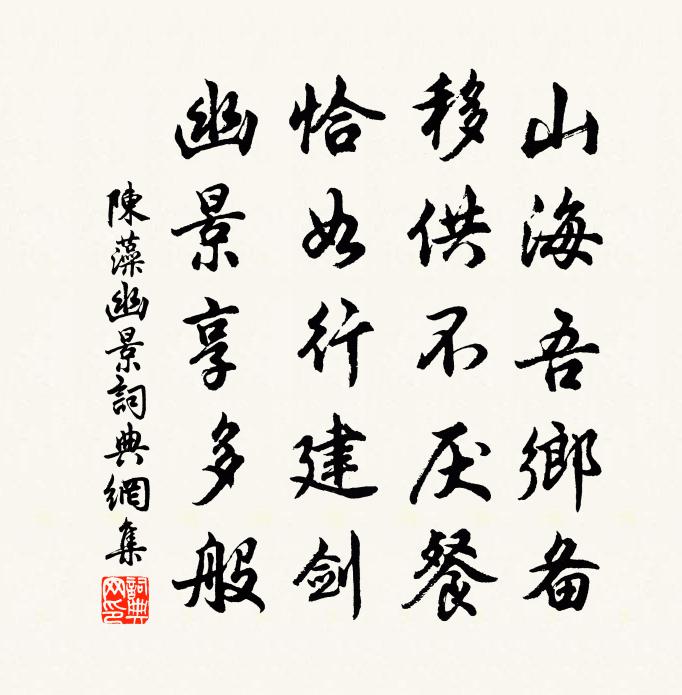 山海吾鄉备
移供不厌餐
恰如行建剑
幽景享多般
陳藻幽景詞典網集
詞典网印